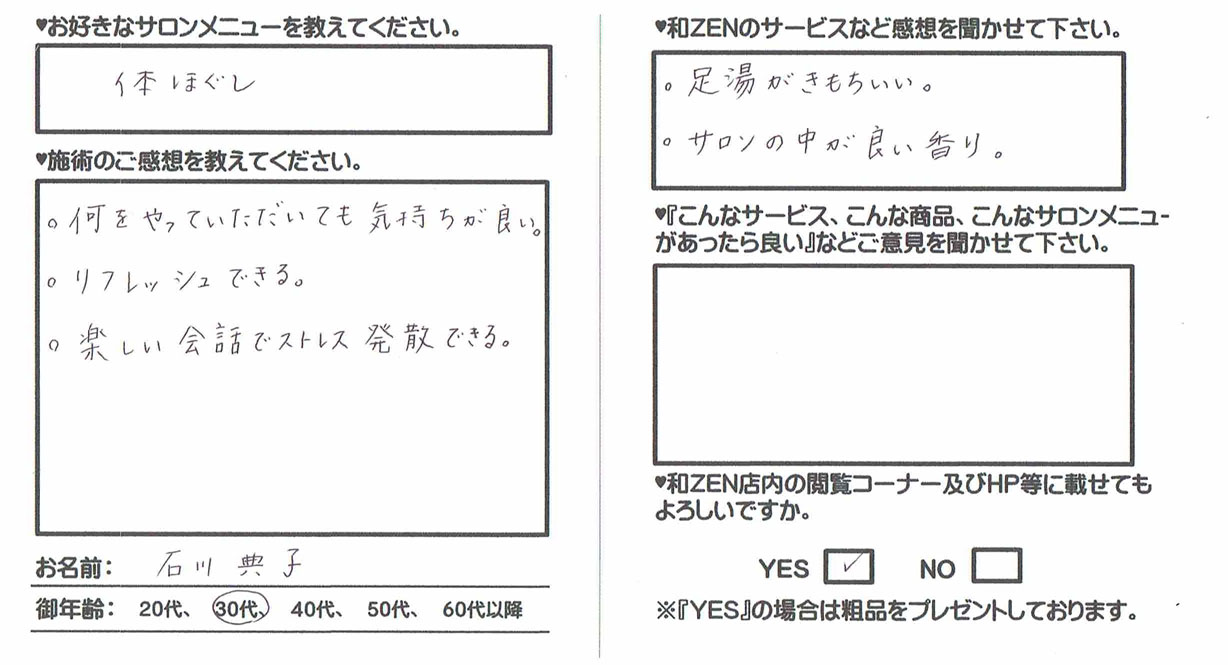 ♥お好きなサロンメニューを教えてください。
体ほぐし
♥施術のご感想を教えてください。
○何をやっていただいても気持ちが良い。
○リフレッシュできる。
○楽しい会話でストレス発散できる。
お名前： 石川典子
御年齢： 20代、 30代、 40代、 50代、 60代以降
♥和ZENのサービスなど感想を聞かせて下さい。
○足湯がきもちいい。
○サロンの中が良い香り。
♥『こんなサービス、こんな商品、こんなサロンメニュー
があったら良い』などご意見を聞かせて下さい。
♥和ZEN店内の閲覧コーナー及びHP等に載せても
よろしいですか。
YES ✓ NO
※『YES』の場合は粗品をプレゼントしております。